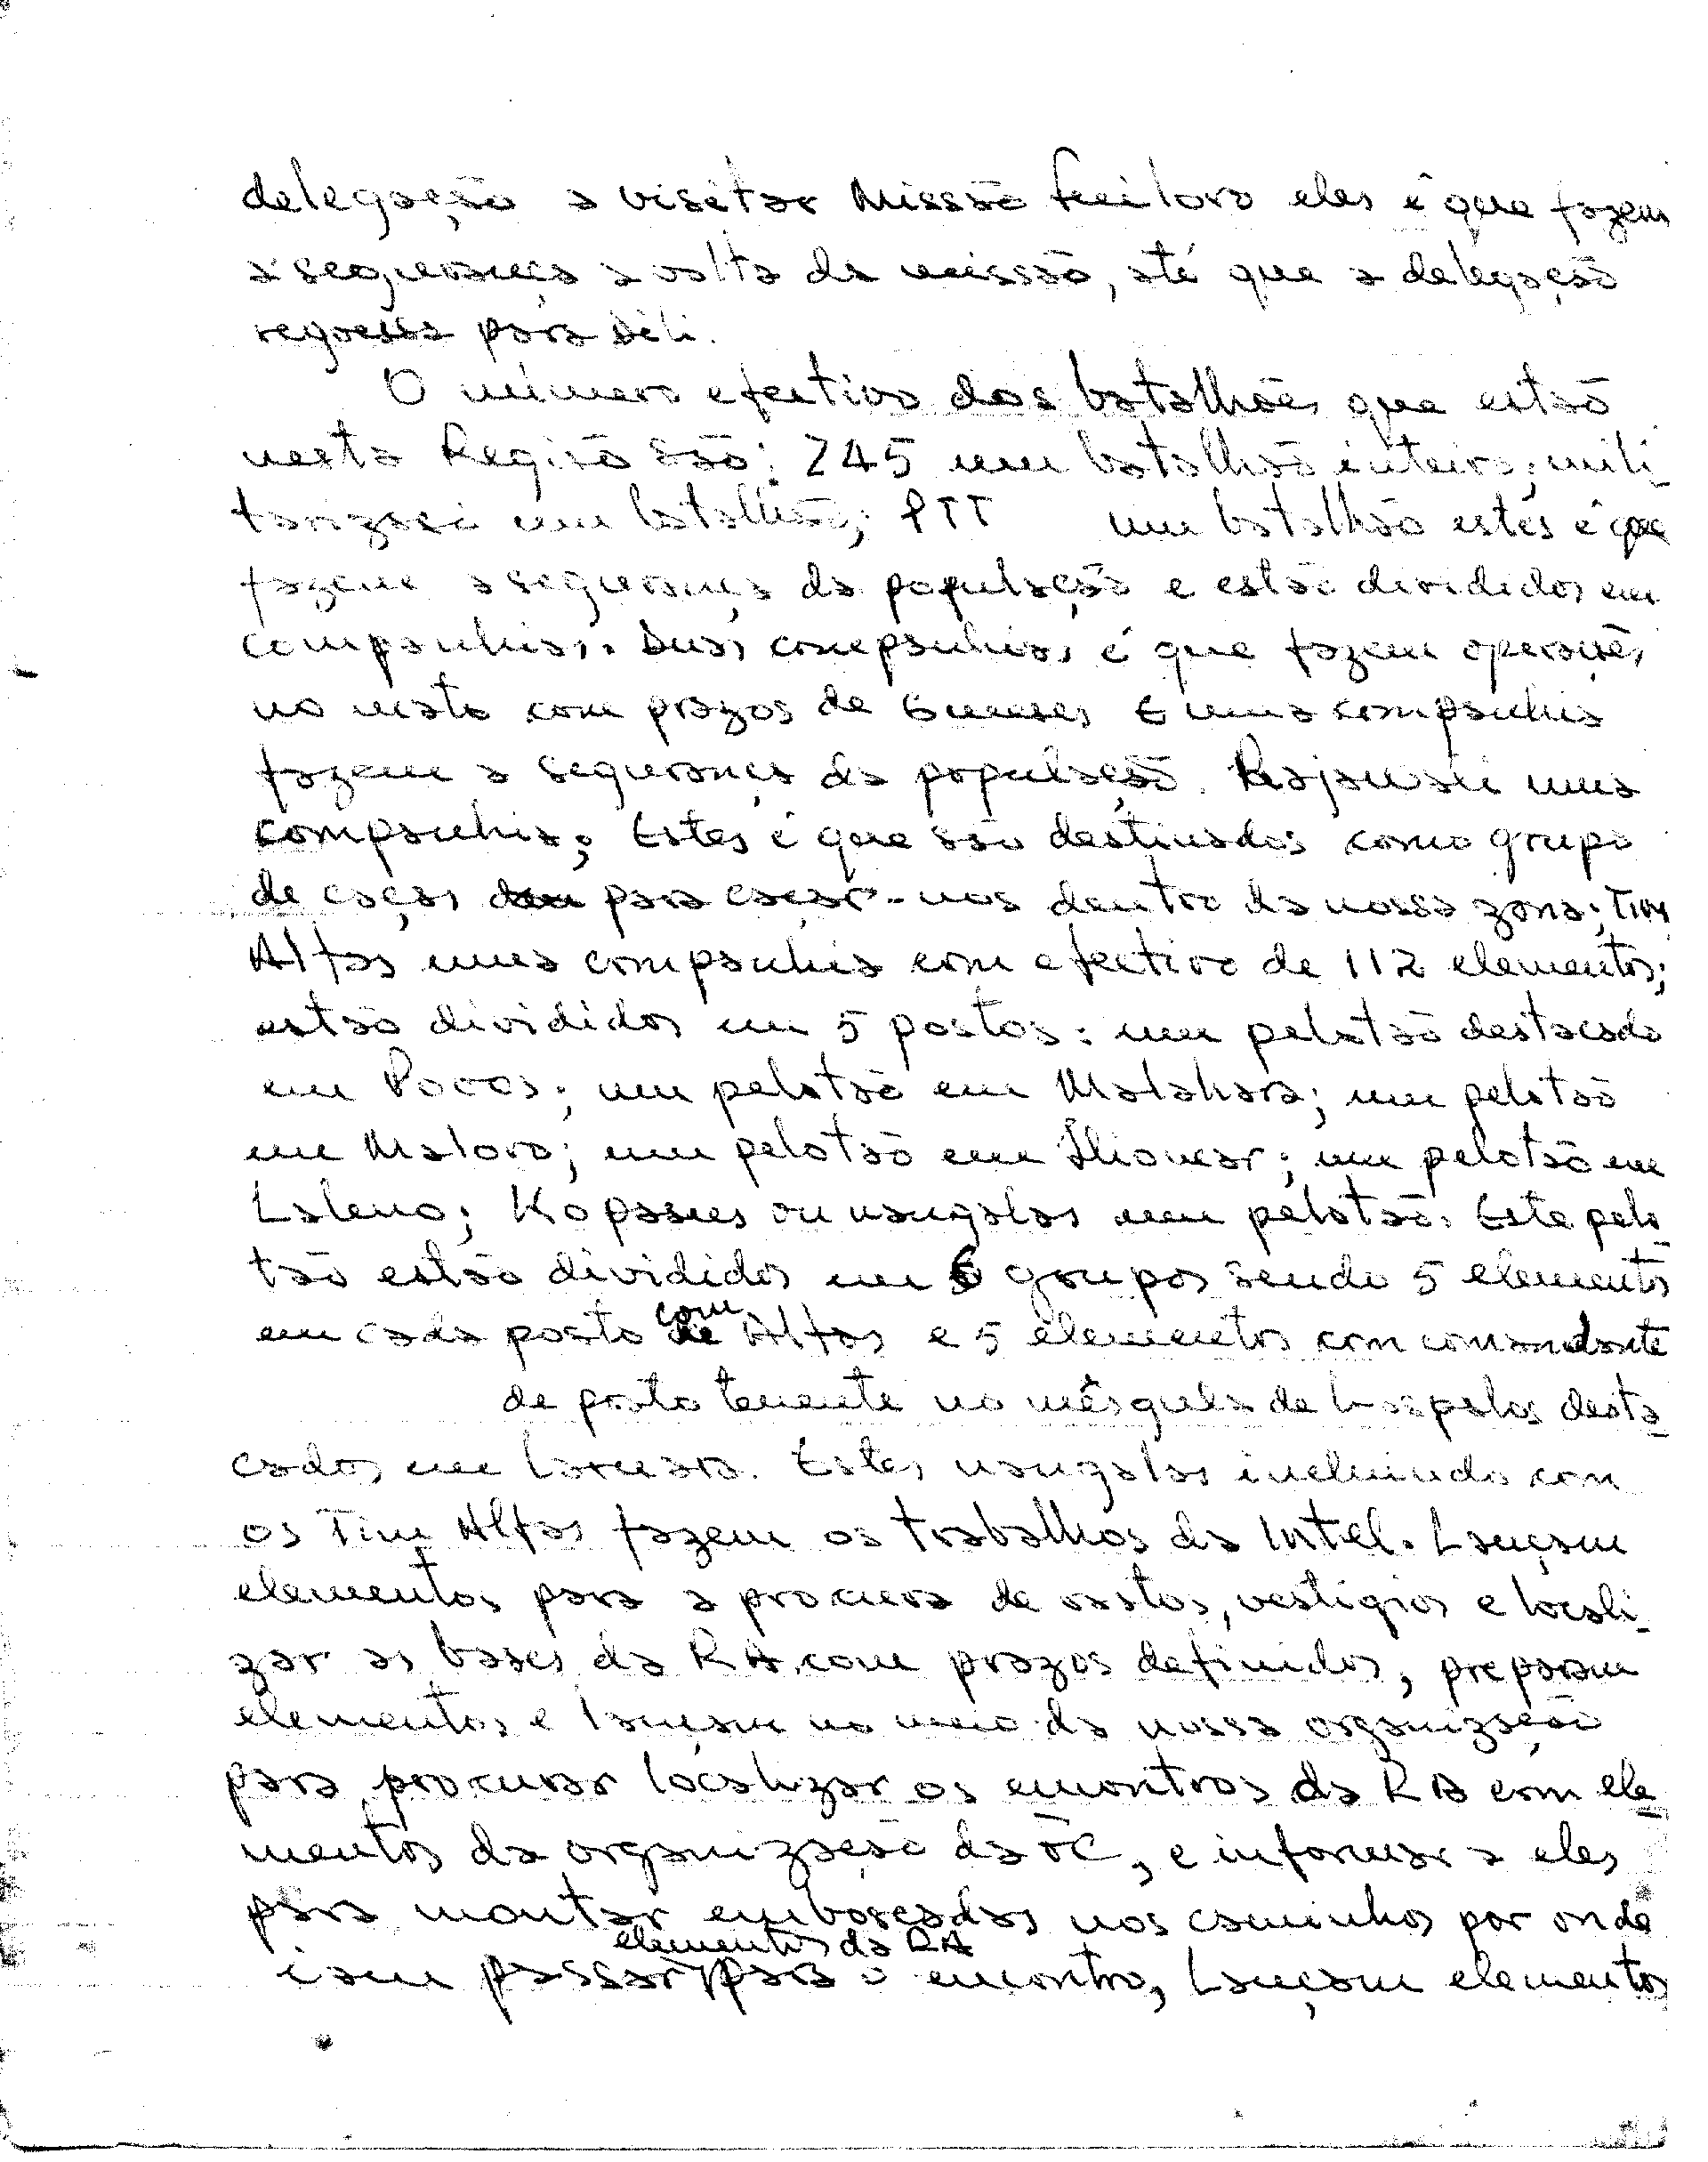 delegação a visitar Missão Fuiloro eles é que fazem
a segurança a volta da missão, até que a delegação
regressa para Dili.
O número efectivo dos batalhões que estão
nesta Região são: 745 um batalhão inteiro; mili
tarizasi um batalhão; PTT um batalhão estes é que
fazem a segurança da população e estão divididos em
companhias. Duas companhias é que fazem operações
no mato com prazos de 6 meses E uma companhia
fazem a segurança da população. Rajawali uma
companhia; Estes é que são destinados como grupo
de caças para caçar-nos dentro da nossa zona; Tim
Alfas uma companhia com efectivo de 112 elementos;
estão divididos em 5 postos: um pelotão destacado
em Poros; um pelotão em Malahara; um pelotão
em Maloro; um pelotão em Iliomar; um pelotão em
Laleno; Kopassus ou nangalas um pelotão. Este pelo
tão estão divididos em 6 grupos sendo 5 elementos
em cada posto com Alfas e 5 elementos com comandante
de posto tenente no de Lospalos desta
cados em Loruara. Estes nangalas incluindo com
os Tim Alfas fazem os trabalhos da Intel. Lançam
elementos para a procura de rastos, vestigios e locali_
zar as bases da RA com prazos definidos, preparam
elementos e lançam no meio da nossa organização
para procurar localizar os encontros da RA com ele_
mentos da organização da FC, e informar a eles
para montar emboscadas nos caminhos por onde
iam passar elementos da RA para o encontro, Lançam elementos